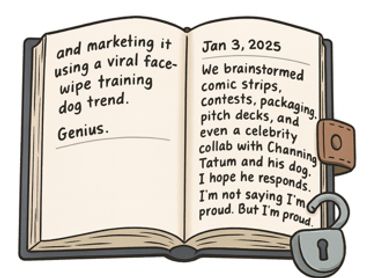 and marketing it
using a viral face-
wipe training
dog trend.
Genius.
Jan 3, 2025
We brainstormed
comic strips,
contests, packaging,
pitch decks, and
even a celebrity
collab with Channing
Tatum and his dog.
I hope he responds.
I'm not saying I'm
proud. But I'm proud.